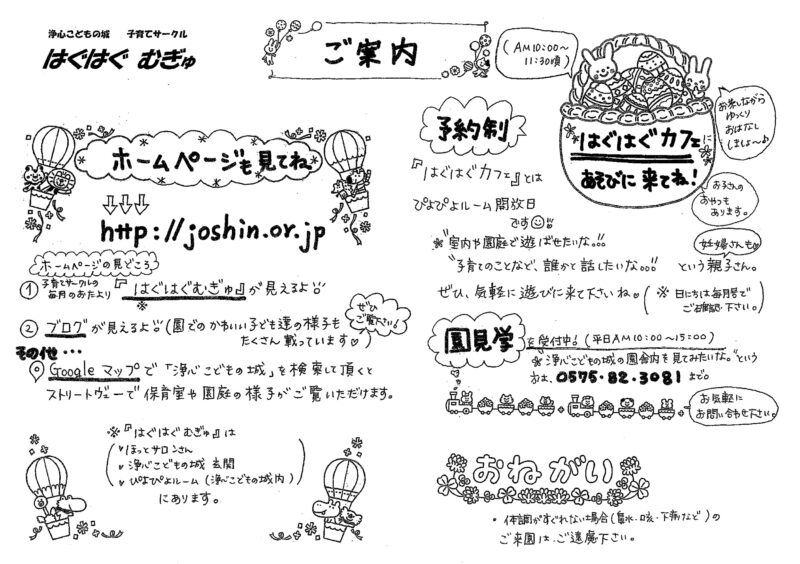 浄心こどもの城 子育てサークル
はぐはぐ むぎゅ
ご案内
ホームページも見てね
http://joshin.or.jp
ホームページの見どころ
① 子育てサークルの
毎月のおたより 『はぐはぐむぎゅ』が見えるよ!!
※
② ブログが見えるよ!!(園でのかわいい子ども達の様子も
たくさん載っています♡)
ぜひ
ご覧下さい!
その他…
Google マップで「浄心こどもの城」を検索して頂くと
ストリートヴューで保育室や園庭の様子がご覧いただけます。
※『はぐはぐむぎゅ』は
♥ ほっとサロンさん
♥ 浄心こどもの城 玄関
♥ ぴよぴよルーム(浄心こどもの城内)
にあります。
(AM10:00〜
11:30頃)
予約制
はぐはぐカフェに
あそびに来てね!
お茶しながら
ゆっくり
おはなし
しましょ〜♪
お子さんの
おやつも
あります。
『はぐはぐカフェ』とは
ぴよぴよルーム開放日
です☺!!
"室内や園庭で遊ばせたいな。。"
"子育てのことなど、誰かと話したいな。。" という親子さん。
妊婦さんも♥
ぜひ、気軽に遊びに来て下さいね♡
(※ 日にちは毎月号で
ご確認下さい。)
園見学 を受付中!(平日AM10:00〜15:00)
"浄心こどもの城の園舎内を見てみたいな。"という
方は、0575・82・3081まで。
お気軽に
お問い合わせ下さい。
おねがい
・体調がすぐれない場合(鼻水・咳・下痢など)の
ご来園は、ご遠慮下さい。